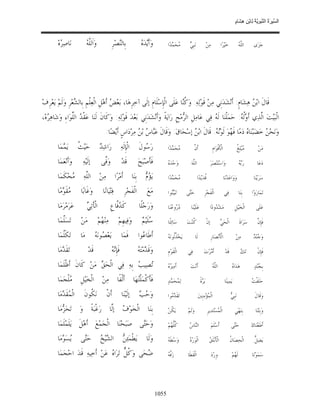 السِّيرَةُ النَّبَوِيَّةُ لِابْنِ هِشَامٍ
جَزَى اللهُ خَيْرًا مِنْ نَبِيٍّ مُحَمَّدًا وَأَيَّدَهُ بِالنَّصْرِ وَاللهُ نَاصِرُهْ
قَالَ ابْنُ هِشَامٍ: أَنْشَدَنِي مِنْ قَوْلِهِ وَكُنَّا عَلَى الْإِسْلَامِ إِلَى آخِرِهَا، بَعْضُ أَهْلِ الْعِلْمِ بِالشِّعْرِ وَلَمْ يَعْرِفْ
الْبَيْتَ الَّذِي أَوَّلُهُ حَمَلْنَا لَهُ فِي عَامِلِ الرُّمْحِ رَايَةً وَأَنْشَدَنِي بَعْدَ قَوْلِهِ. وَكَانَ لَنَا عَقْدُ اللِّوَاءِ وَشَاهِرُهْ،
وَنَحْنُ خَضَبْنَاهُ دَمًا فَهْوَ لَوْنُهُ. قَالَ ابْنُ إسْحَاقَ وَقَالَ عَبَّاسُ بْنُ مِرْدَاسٍ أَيْضًا:
مَنْ مُبْلِغُ الْأَقْوَامِ أَنَّ مُحَمَّدًا رَسُولَ الْإِلَهِ رَاشِدٌ حَيْثُ يَمَّمَا
دَعَا رَبَّهُ وَاسْتَنْصَرَ اللهَ وَحْدَهُ فَأَصْبَحَ قَدْ وَفَّى إِلَيْهِ وَأَنْعَمَا
سَرَيْنَا وَوَاعَدْنَا قُدَيْدًا مُحَمَّدًا يَؤُمُّ بِنَا أَمْرًا مِنَ اللهِ مُحْكَمَا
تَمَارَوْا بِنَا فِي الْفَجْرِ حَتَّى تَبَيَّنُوا مَعَ الْفَجْرِ فِتْيَانًا وَغَابًا مُقَوَّمَا
عَلَى الْخَيْلِ مَشْدُودًا عَلَيْنَا دُرُوعُنَا وَرَجْلًا كَدُفَّاعِ الْأَتِيِّ عَرَمْرَمَا
فَإِنَّ سَرَاةَ الْحَيِّ إِنْ كُنْتَ سَائِلًا سُلَيْمٌ وَفِيهِمْ مِنْهُمْ مَنْ تَسَلَّمَا
وَجُنْدٌ مِنَ الْأَنْصَارِ لَا يَخْذُلُونَهُ أَطَاعُوا فَمَا يَعْصُونَهُ مَا تَكَلَّمَا
فَإِنْ تَكُ قَدْ أَمَّرْتَ فِي الْقَوْمِ خَالِدًا وَقَدَّمْتَهُ فَإِنَّهُ قَدْ تَقَدَّمَا
بِجُنْدٍ هَدَاهُ اللهُ أَنْتَ أَمِيرُهُ تُصِيبُ بِهِ فِي الْحَقِّ مَنْ كَانَ أَظْلَمَا
حَلَفْتُ يَمِينًا بَرَّةً لِمُحَمَّدٍ فَأَكْمَلْتُهَا أَلْفًا مِنَ الْخَيْلِ مُلْجَمَا
وَقَالَ نَبِيُّ الْمُؤْمِنِينَ تَقَدَّمُوا وَحُبَّ إِلَيْنَا أَنْ نَكُونَ الْمُقَدَّمَا
وَبِتْنَا بِنَهْيِ الْمُسْتَدِيرِ وَلَمْ يَكُنْ بِنَا الْخَوْفُ إِلَّا رَغْبَةً وَ تَحَزُّمَا
أَطَعْنَاكَ حَتَّى أَسْلَمَ النَّاسُ كُلُّهُمْ وَحَتَّى صَبَحْنَا الْجَمْعَ أَهْلَ يَلَمْلَمَا
يَضِلُّ الْحِصَانُ الْأَبْلَقُ الْوَرْدُ وَسْطَهُ وَلَا يَطْمَئِنُّ الشَّيْخُ حَتَّى يُسَوَّمَا
سَمَوْنَا لَهُمْ وِرْدَ الْقَطَا زَفَّهُ ضُحًى وَكُلٌّ تَرَاهُ عَنْ أَخِيهِ قَدَ احْجَمَا
1055